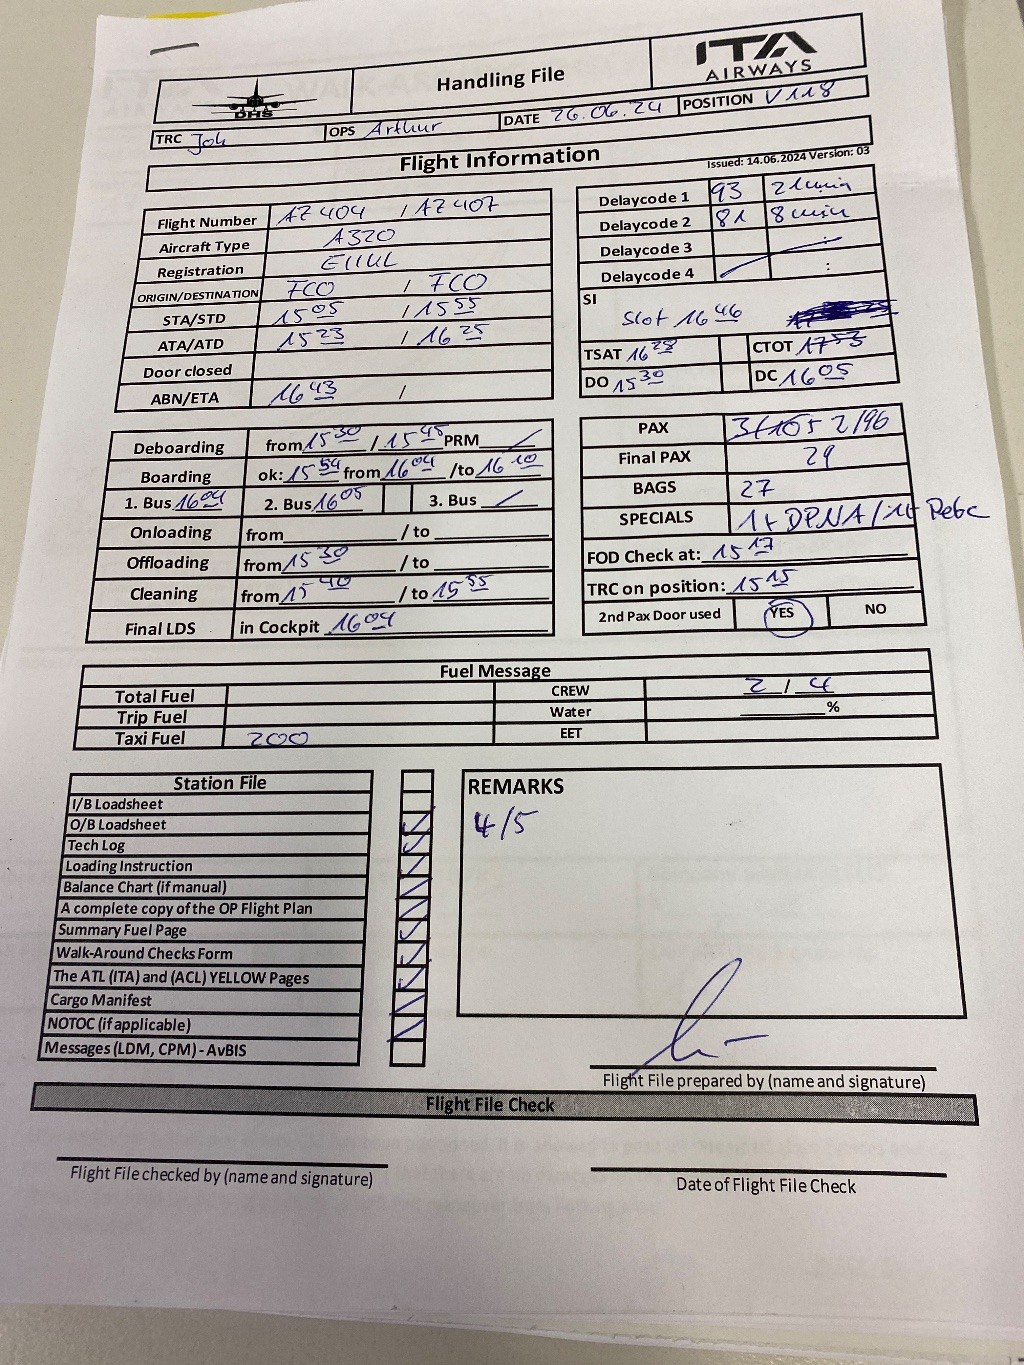 ITA
AIRWAYS
Handling File
DHS
TRC Joh OPS Arthur DATE 26.06.24 POSITION V118
Flight Information
Issued: 14.06.2024 Version: 03
Flight Number AZ404 / AZ407
Aircraft Type A320
Registration
ORIGIN/DESTINATION FCO / FCO
STA/STD 15 05 / 15 55
ATA/ATD 15 23 / 16 25
Door closed
ABN/ETA 16 43 /
Delaycode 1 93 21 min
Delaycode 2 81 8 min
Delaycode 3 :
Delaycode 4 :
SI
Slot 16 46
TSAT 16 28 CTOT 17 53
DO 15 30 DC 16 05
Deboarding from 15 30 / 15 45 PRM
Boarding ok: 15 54 from 16 04 /to 16 10
1. Bus 16 04 2. Bus 16 05 3. Bus
Onloading from / to
Offloading from 15 30 / to
Cleaning from 15 40 / to 15 55
Final LDS in Cockpit 16 04
PAX 3/105 2/96
Final PAX
BAGS 27
SPECIALS 1+ DPNA/1+ Petc
FOD Check at: 15 17
TRC on position: 15 15
2nd Pax Door used YES NO
Fuel Message
Total Fuel CREW 2 / 4
Trip Fuel Water %
Taxi Fuel 200 EET
Station File
I/B Loadsheet
O/B Loadsheet
Tech Log
Loading Instruction
Balance Chart (if manual)
A complete copy of the OP Flight Plan
Summary Fuel Page
Walk-Around Checks Form
The ATL (ITA) and (ACL) YELLOW Pages
Cargo Manifest
NOTOC (if applicable)
Messages (LDM, CPM) - AvBIS
REMARKS
4/5
Flight File prepared by (name and signature)
Flight File Check
Flight File checked by (name and signature)
Date of Flight File Check